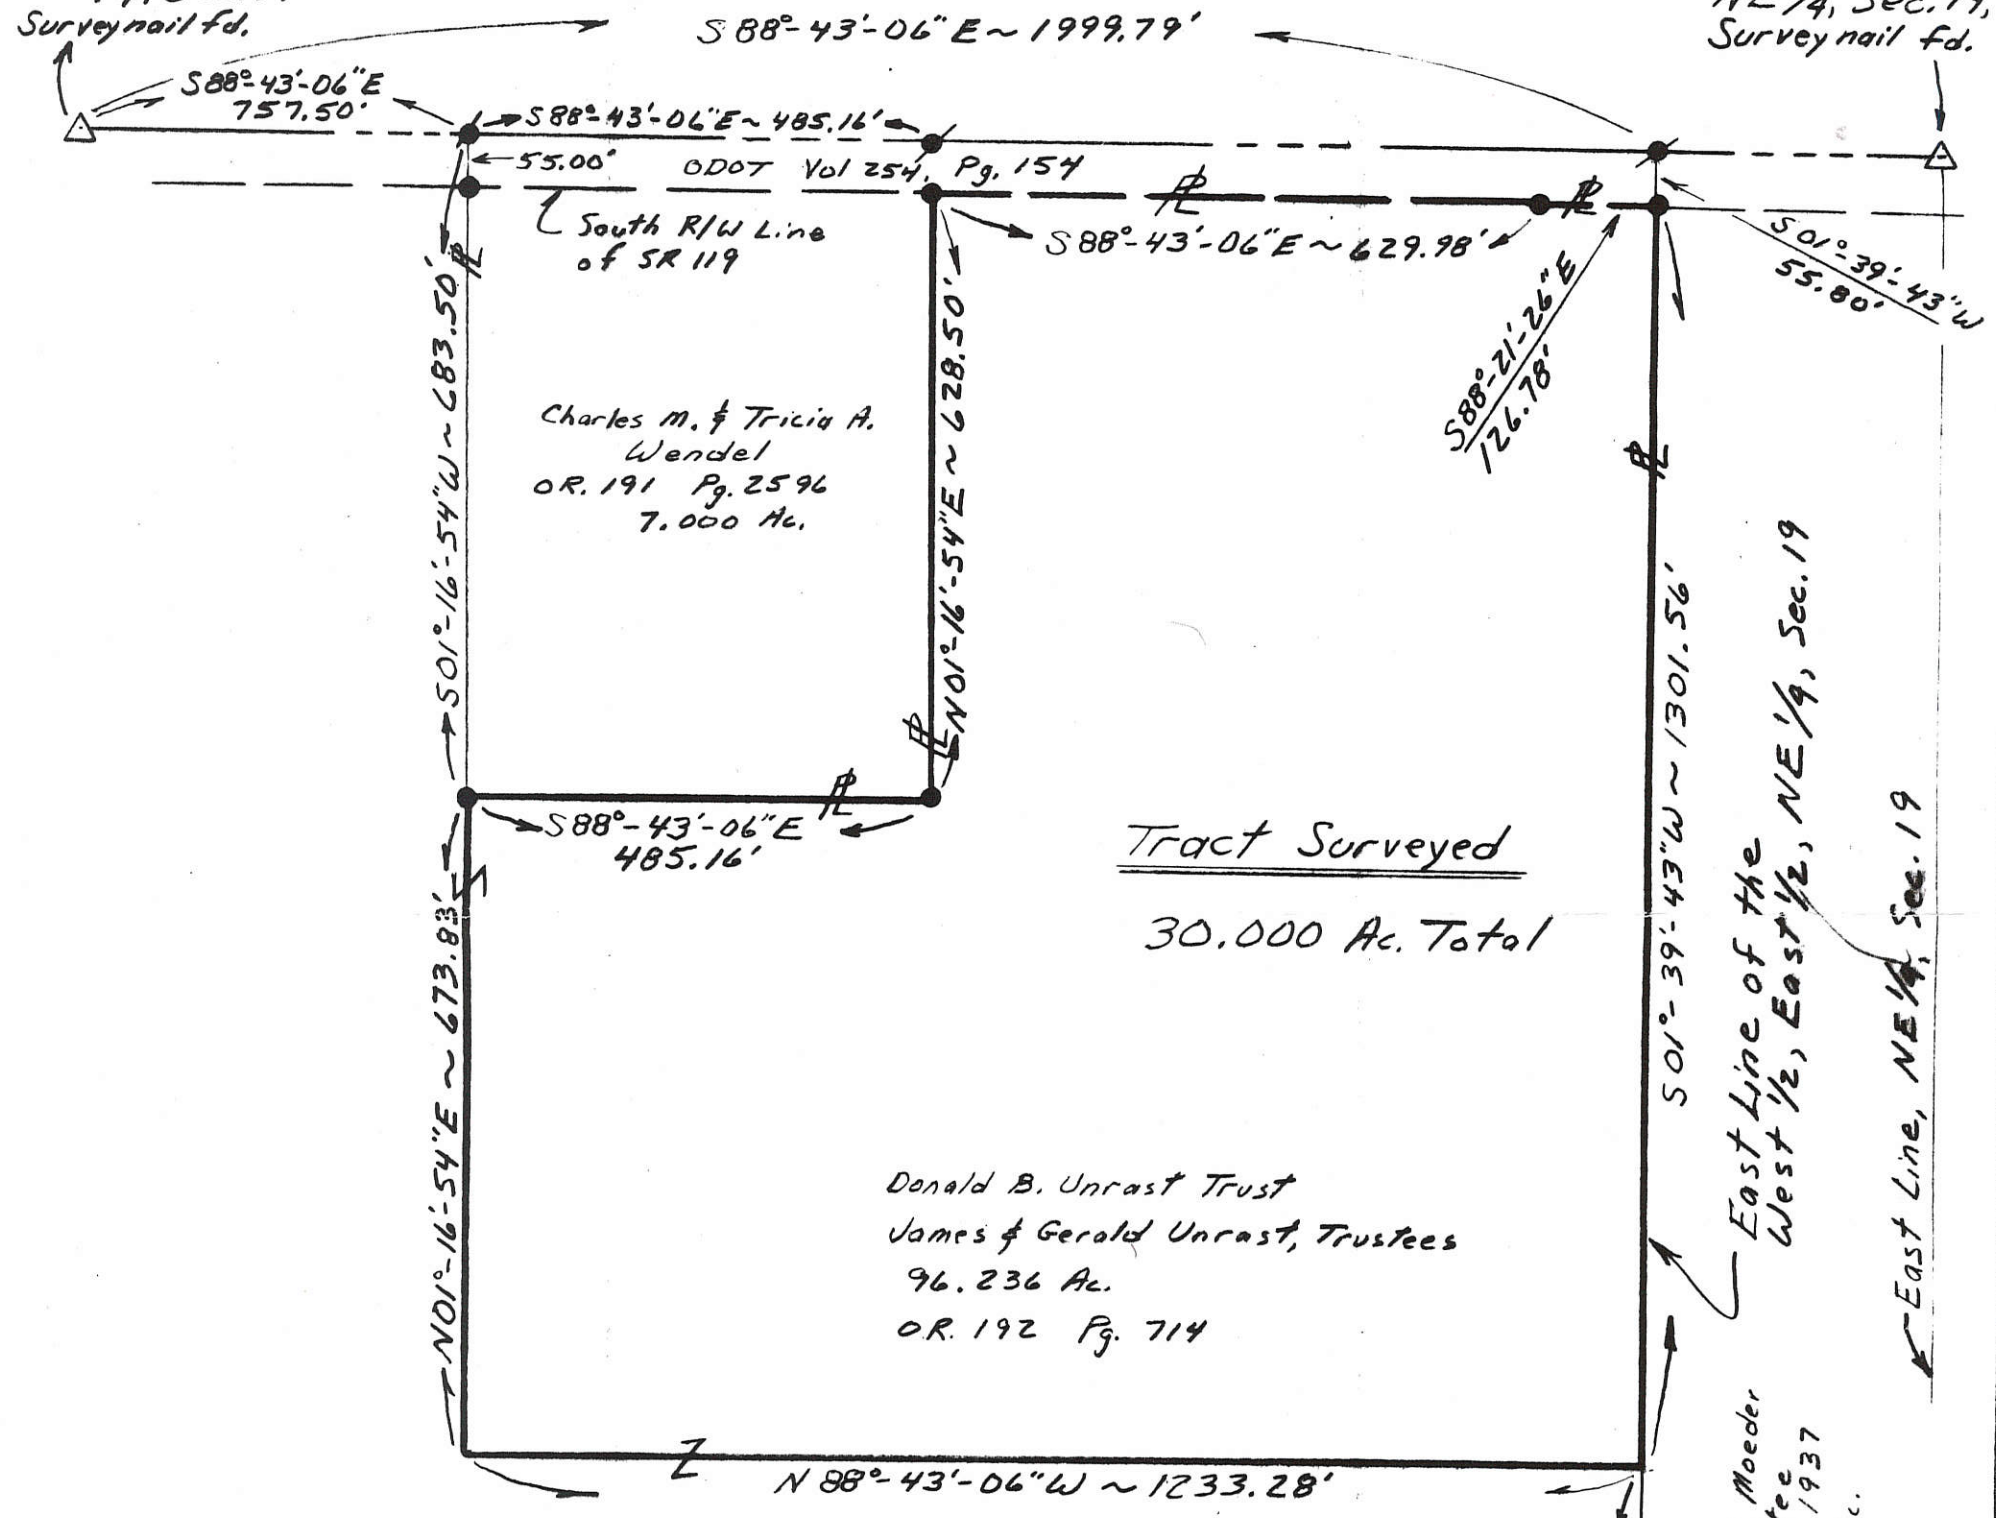 Survey nail fd.
S 88°-43'-06" E ~ 1999.79'
NE 1/4, Sec. 19,
Survey nail fd.
S 88°-43'-06" E
757.50'
S 88°-43'-06" E ~ 485.16'
55.00'
ODOT Vol 254, Pg. 154
South R/W Line
of SR 119
S 88°-43'-06" E ~ 629.98'
S 01°-39'-43" W
55.80'
S 88°-21'-26" E
126.78'
S 01°-16'-54" W ~ 683.50'
N 01°-16'-54" E ~ 628.50'
Charles M. & Tricia A.
Wendel
OR. 191 Pg. 2596
7.000 Ac.
S 88°-43'-06" E
485.16'
Tract Surveyed
30.000 Ac. Total
S 01°-39'-43" W ~ 1301.56'
East Line of the
West 1/2, East 1/2, NE 1/4, Sec. 19
East Line, NE 1/4, Sec. 19
N 01°-16'-54" E ~ 673.83'
Donald B. Unrast Trust
James & Gerald Unrast, Trustees
96.236 Ac.
O.R. 192 Pg. 714
N 88°-43'-06" W ~ 1233.28'
Moeder
tee
1937
c.